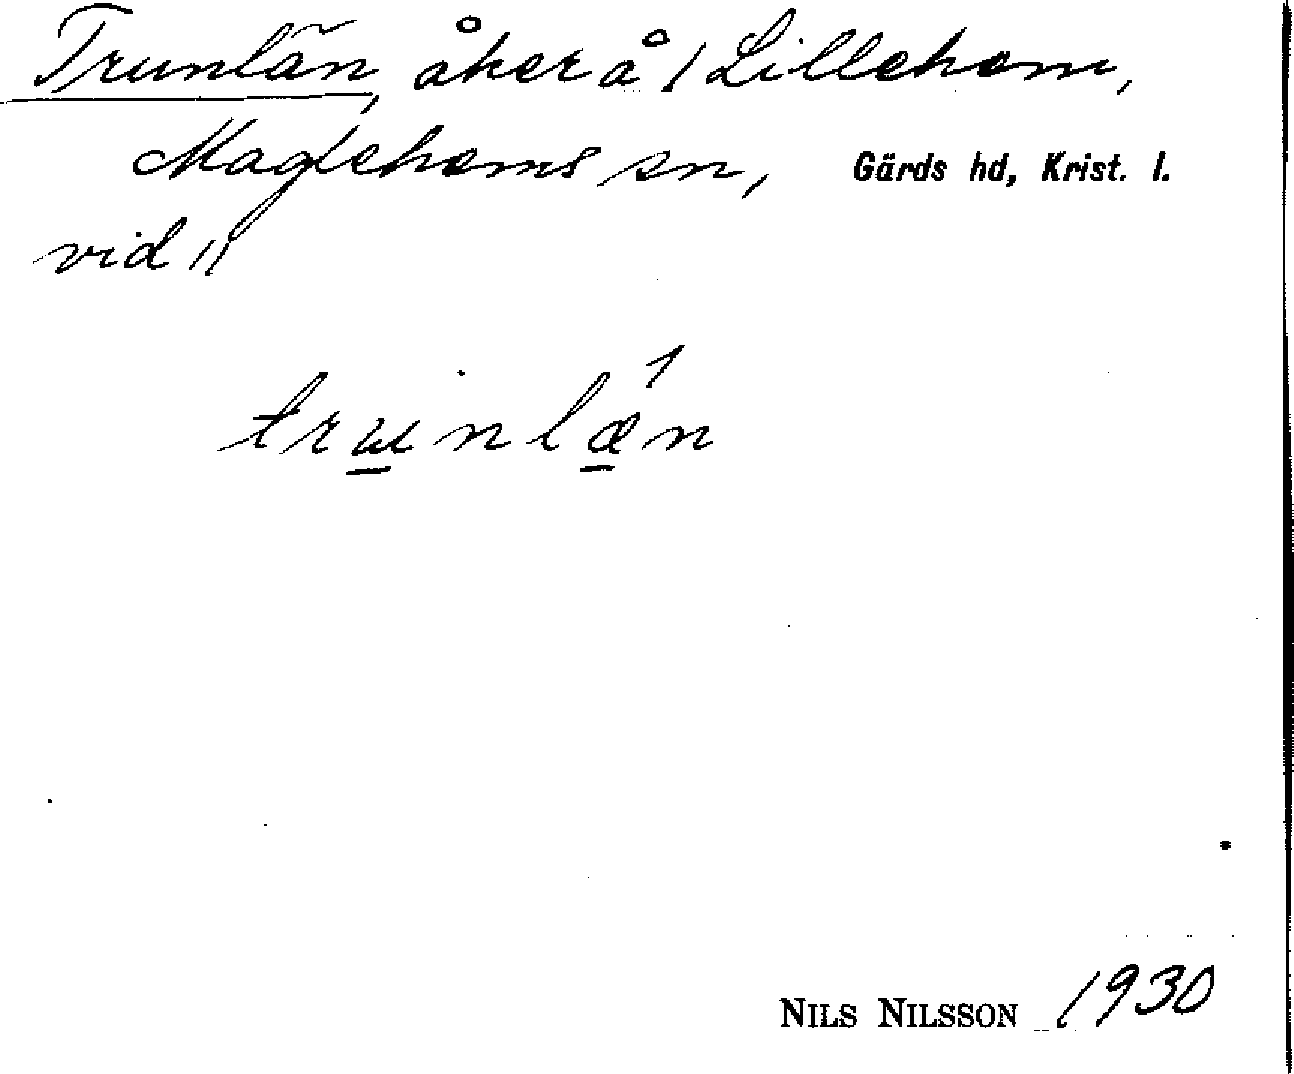 Trunlän, åker å / Lillehem,
Maglehems sn, Gärds hd, Krist. l.
vid 11
trunlæn
NILS NILSSON 1930